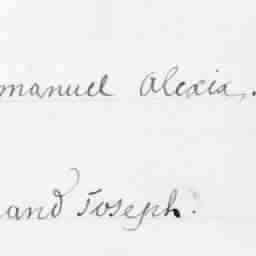 manuel Alexia,.
and Joseph.